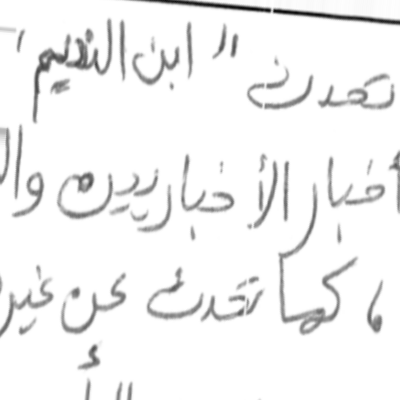 تحدث " ابن النديم "
أخبار الأخباريين
، كما تحدث عن